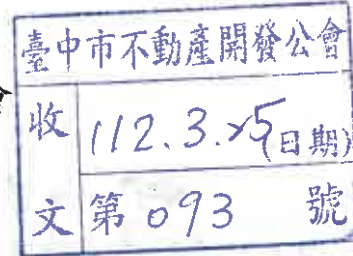 臺中市不動產開發公會
收文
112.3.25(日期)
第093號